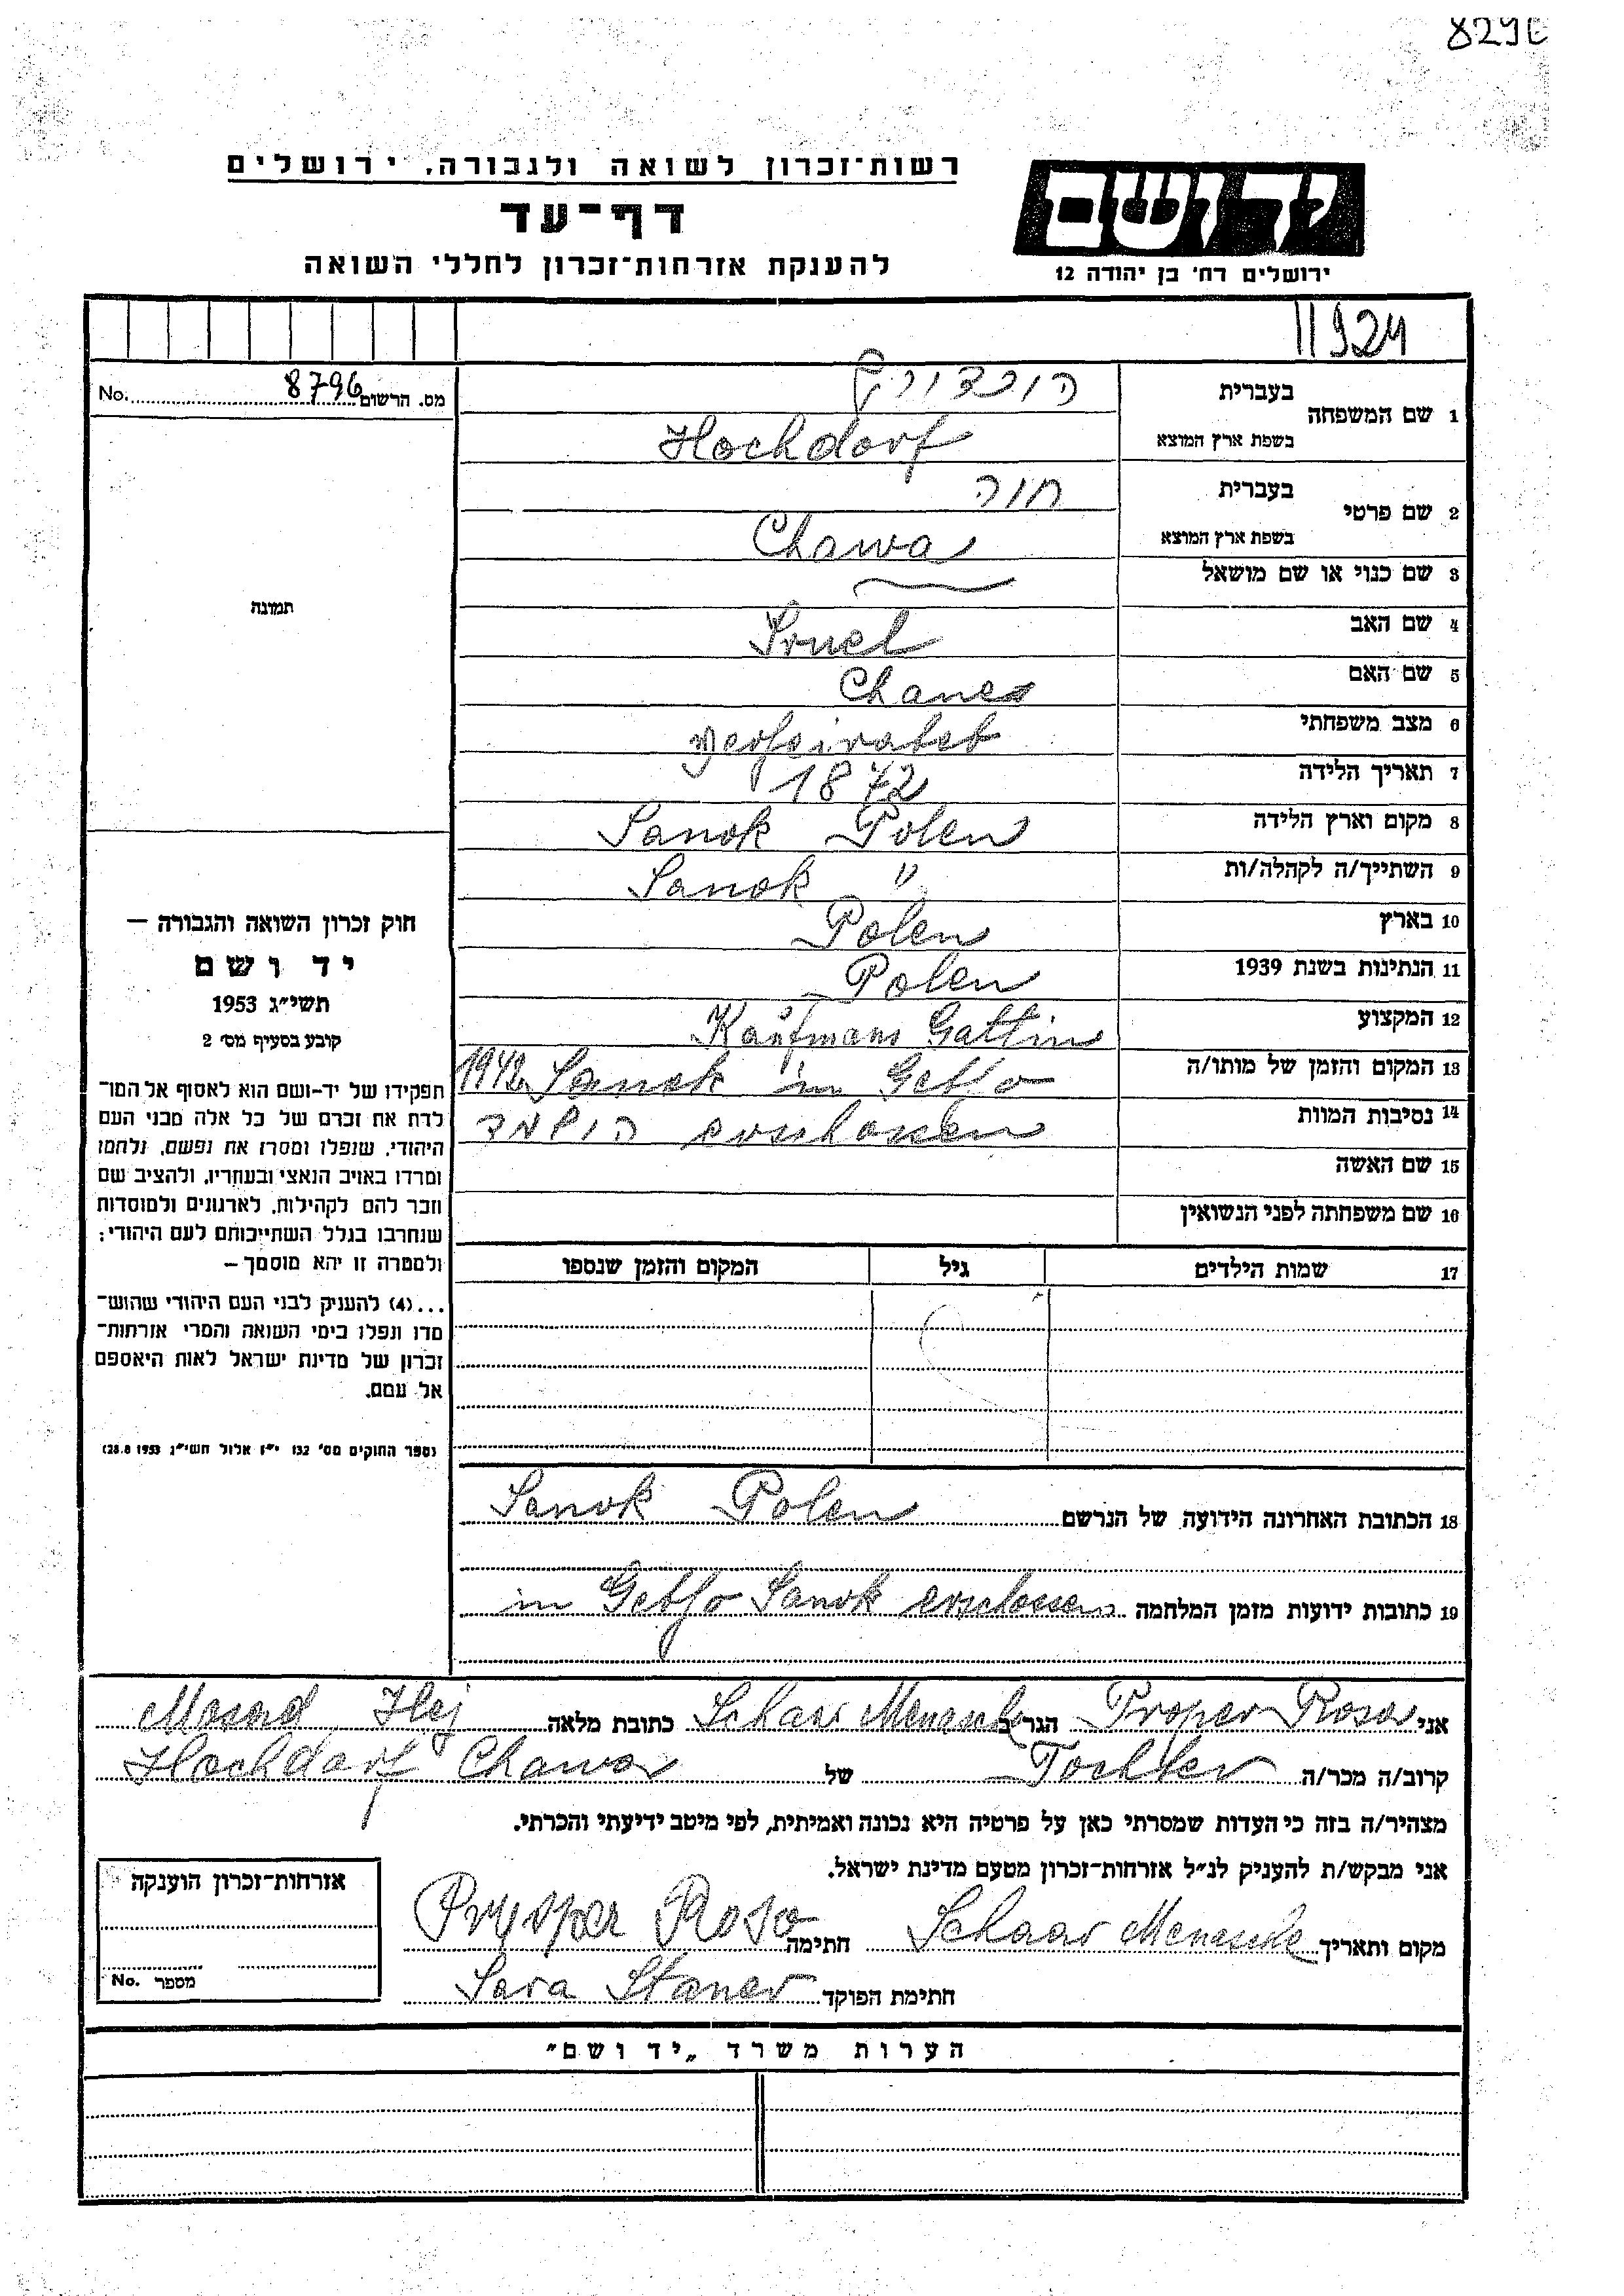 829
רשות־זכרון לשואה ולגבורה, ירושלים
דף־עד
להענקת אזרחות־זכרון לחללי השואה
יד ושם
ירושלים רח' בן יהודה 12
11924
No. מס. הרשום 8796
1 שם המשפחה בעברית הוכדורף
בשפת ארץ המוצא Hochdorf
2 שם פרטי בעברית חוה
בשפת ארץ המוצא Chawa
3 שם כנוי או שם מושאל
4 שם האב Sruel
5 שם האם Chanea
6 מצב משפחתי verheiratet
7 תאריך הלידה 1872
8 מקום וארץ הלידה Sanok Polen
9 השתייך/ה לקהלה/ות Sanok "
10 בארץ Polen
11 הנתינות בשנת 1939 Polen
12 המקצוע Kaufmans Gattin
13 המקום והזמן של מותו/ה 1942 Sanok im Getto
14 נסיבות המוות erschossen
15 שם האשה
16 שם משפחתה לפני הנשואין
17 שמות הילדים גיל המקום והזמן שנספו
תמונה
חוק זכרון השואה והגבורה –
יד ושם
תשי"ג 1953
קובע בסעיף מס' 2
תפקידו של יד-ושם הוא לאסוף אל המו־
לדת את זכרם של כל אלה מבני העם
היהודי, שנפלו ומסרו את נפשם, נלחמו
ומרדו באויב הנאצי ובעוזריו, ולהציב שם
וזכר להם לקהילות, לארגונים ולמוסדות
שנחרבו בגלל השתייכותם לעם היהודי;
ולמטרה זו יהא מוסמך –
...(4) להעניק לבני העם היהודי שהוש־
מדו ונפלו בימי השואה והמרי אזרחות־
זכרון של מדינת ישראל לאות היאספם
אל עמם.
(ספר החוקים מס' 132 י"ז אלול תשי"ג 28.8.1953)
18 הכתובת האחרונה הידועה של הנרשם Sanok Polen
19 כתובות ידועות מזמן המלחמה in Getto Sanok erschossen
אני Proper Rosa הגר ב Schaar Menasche כתובת מלאה Mosad
קרוב/ה מכר/ה Tochter של Hochdorf Chawa
מצהיר/ה בזה כי העדות שמסרתי כאן על פרטיה היא נכונה ואמיתית, לפי מיטב ידיעתי והכרתי.
אני מבקש/ת להעניק לנ"ל אזרחות-זכרון מטעם מדינת ישראל.
מקום ותאריך Schaar Menasche חתימה Prosper Rosa
חתימת הפוקד Sara Staner
אזרחות-זכרון הוענקה
מספר No.
הערות משרד „יד ושם"